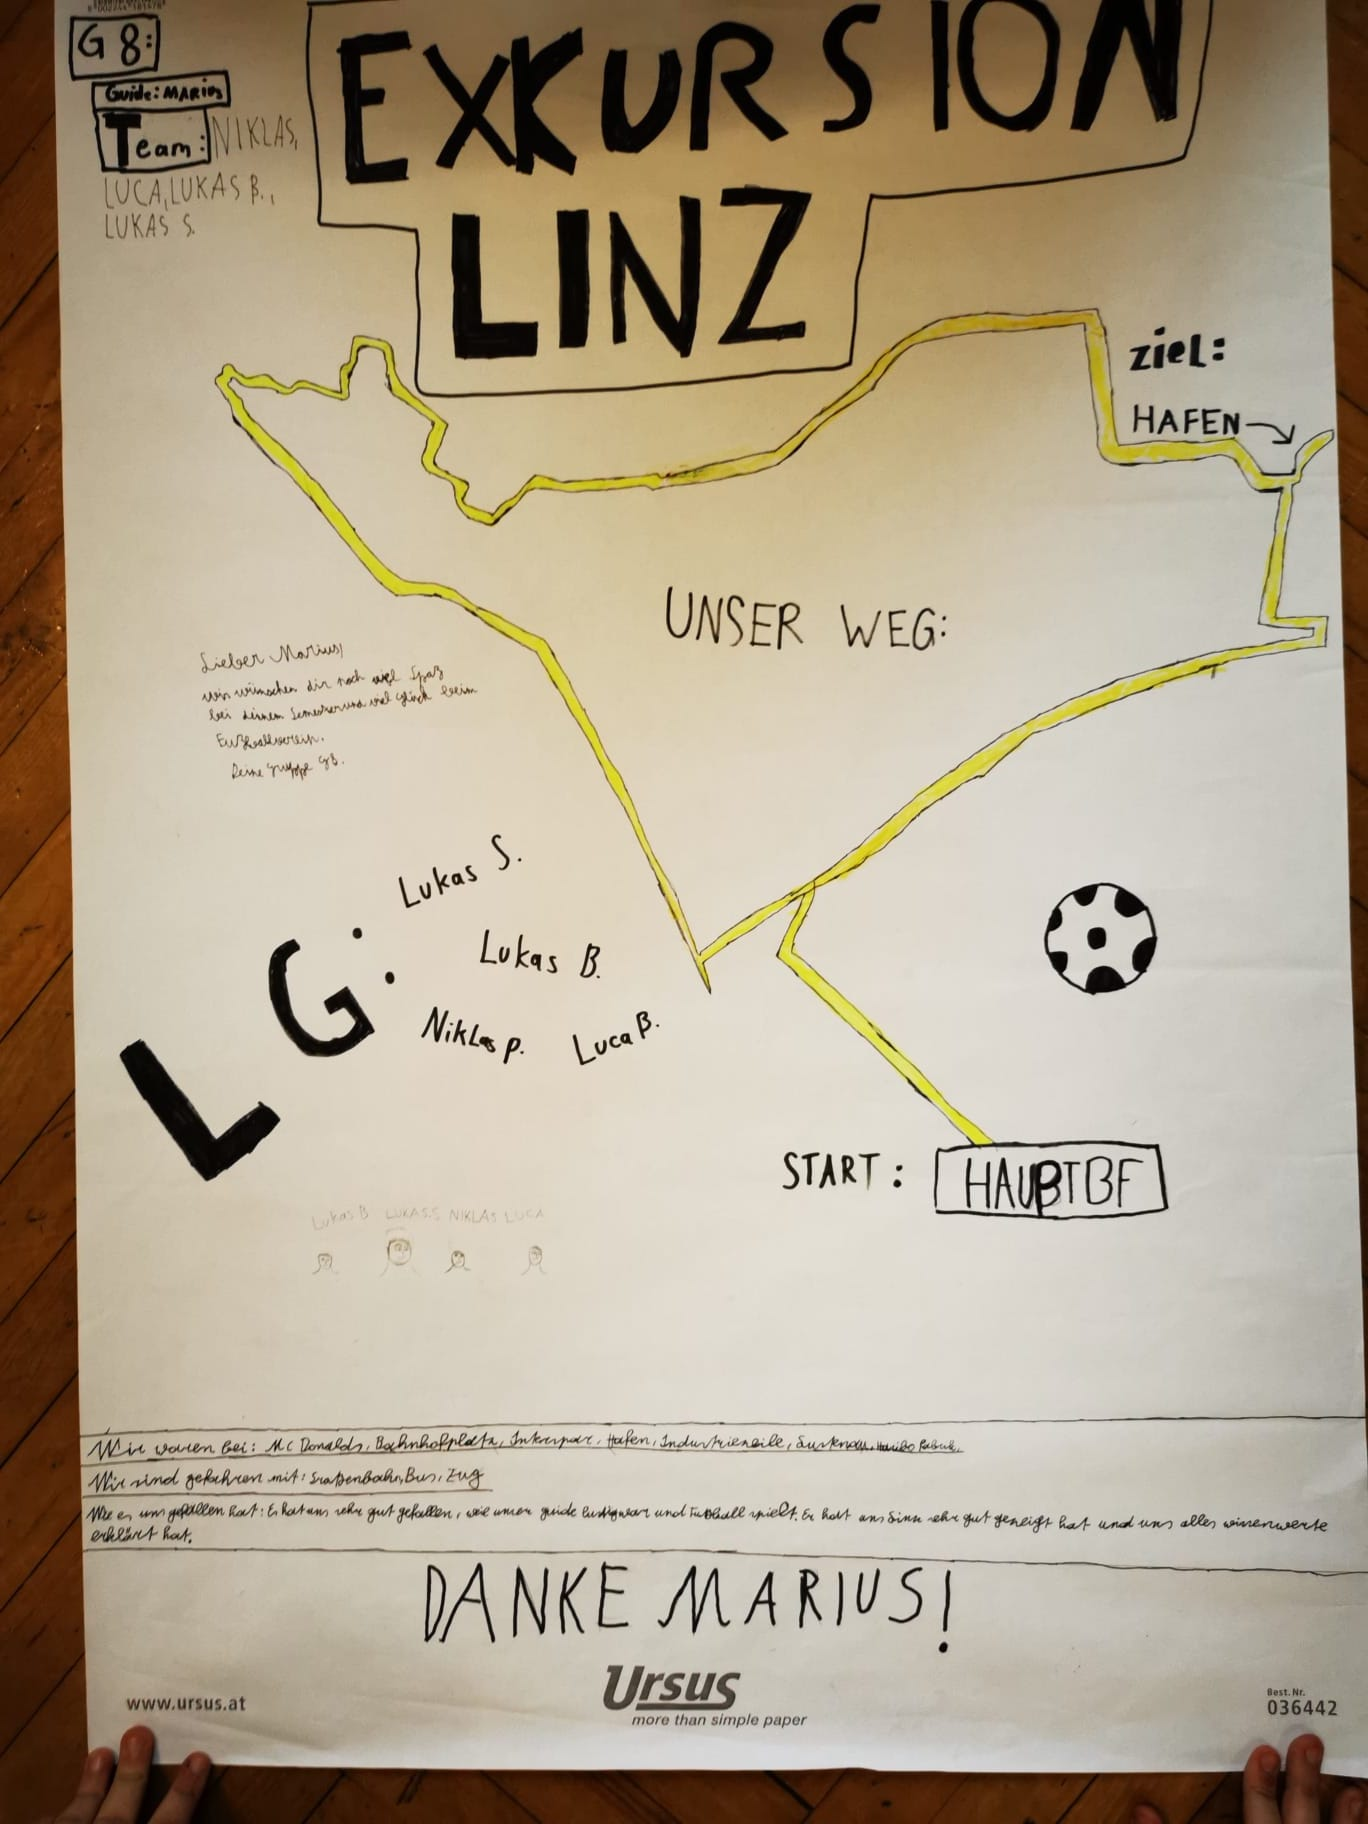 G 8:
Guide: MARIUS
Team: NIKLAS,
LUCA, LUKAS B.,
LUKAS S.
EXKURSION
LINZ
ziel:
HAFEN
UNSER WEG:
Lieber Marius,
wir wünschen dir noch viel Spaß
bei deinem Semester und viel Glück beim
Fußballverein.
Deine Gruppe G8.
LG:
Lukas S.
Lukas B.
Niklas P. Luca B.
START: HAUPTBF
Lukas B LUKAS S NIKLAS LUCA
Wir waren bei: Mc Donalds, Bahnhofplatz, Interspar, Hafen, Industriezeile,
Wir sind gefahren mit: Straßenbahn, Bus, Zug
Wie es uns gefallen hat: Es hat uns sehr gut gefallen, wie unser guide lustig war und Fußball spielt. Er hat uns sehr gut gezeigt hat und uns alles wissenwerte
erklärt hat.
DANKE MARIUS!
Ursus
more than simple paper
www.ursus.at
Best. Nr.
036442